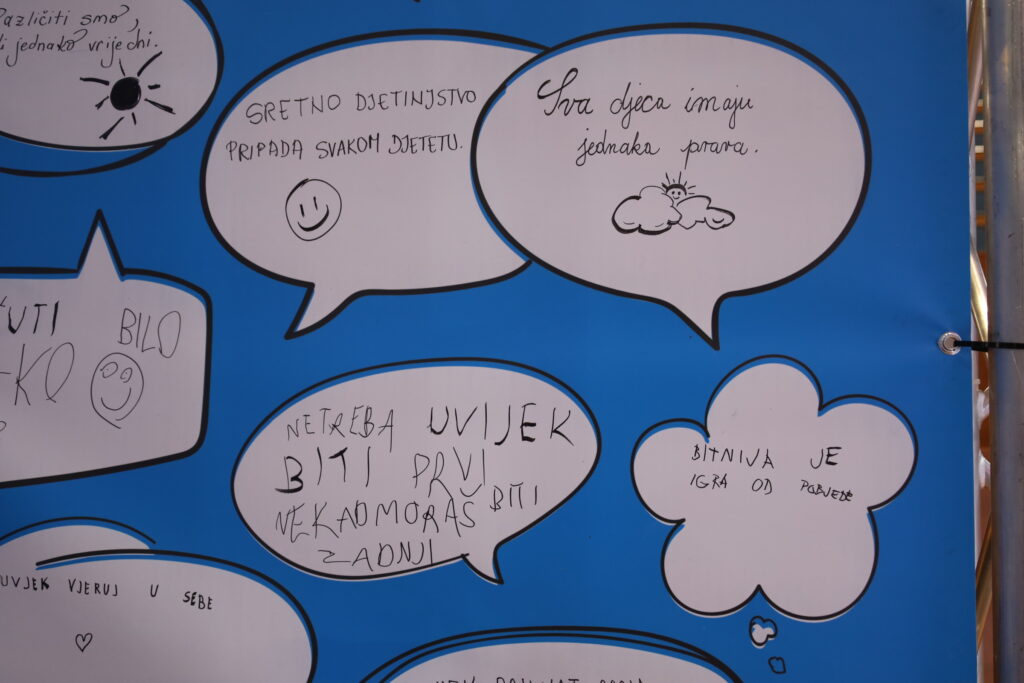 Različiti smo,
jednako vrijedni.
SRETNO DJETINJSTVO
PRIPADA SVAKOM DJETETU.
Sva djeca imaju
jednaka prava.
BILO
NETREBA UVIJEK
BITI PRVI
NEKADMORAŠ BITI
ZADNJI
BITNIJA JE
IGRA OD POBJEDE
UVJEK VJERUJ U SEBE